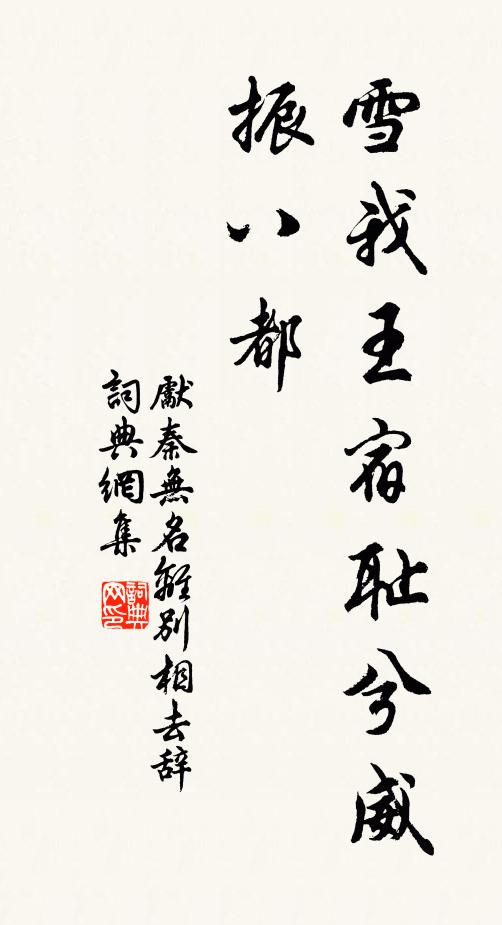 雪我王宿耻兮威
振八都
獻秦無名離別相去辞
詞典網集
詞典
网印